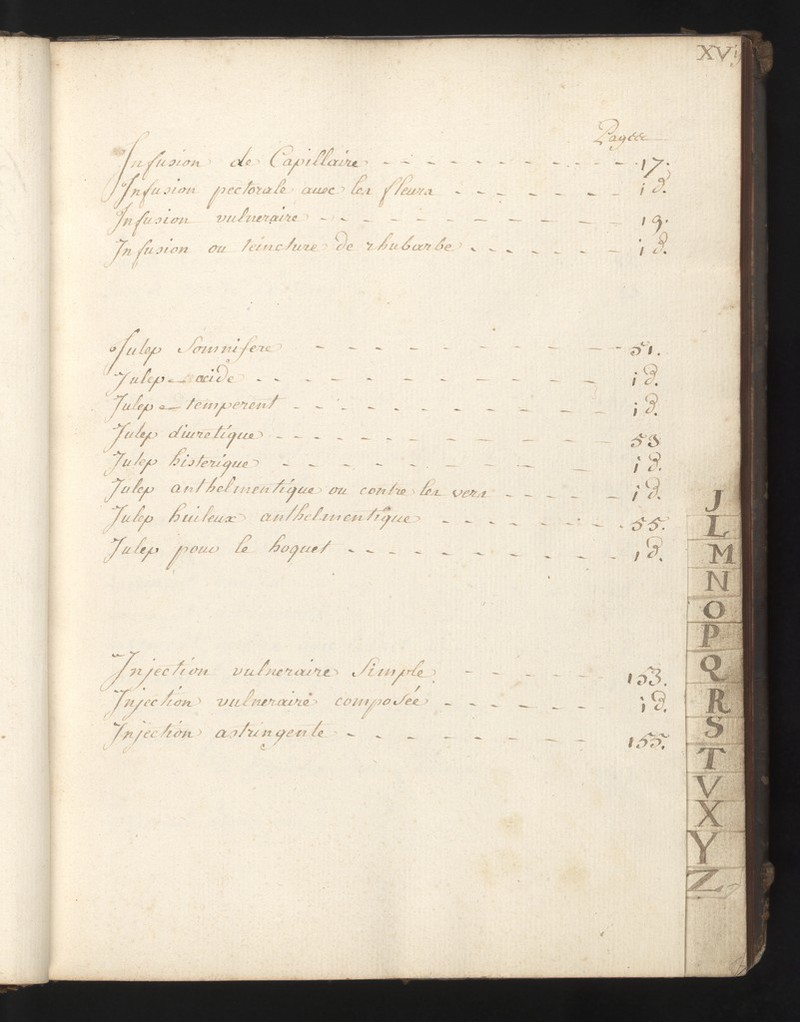 XVij
Pages
Infusion de Capillaire - - - - - - - - - - 17.
Infusion pectorale avec les fleurs - - - - - - - id.
Infusion vulneraire - - - - - - - - - - - 19.
Infusion ou teincture de rhubarbe - - - - - - - id.
Julep Somnifere - - - - - - - - - - 51.
Julep - acide - - - - - - - - - - - id.
Julep - temperent - - - - - - - - - - id.
Julep diuretique - - - - - - - - - - - 53
Julep histerique - - - - - - - - - id.
Julep anthelmentique ou contre les vers - - - - - id.
Julep huileux anthelmentique - - - - - - - - 55.
Julep pour le hoquet - - - - - - - - - id.
Injection vulneraire Simple - - - - - - 153.
Injection vulneraire composée - - - - - - - id.
Injection astringente - - - - - - - - - 155.
J
L
M
N
O
P
Q
R
S
T
V
X
Y
Z